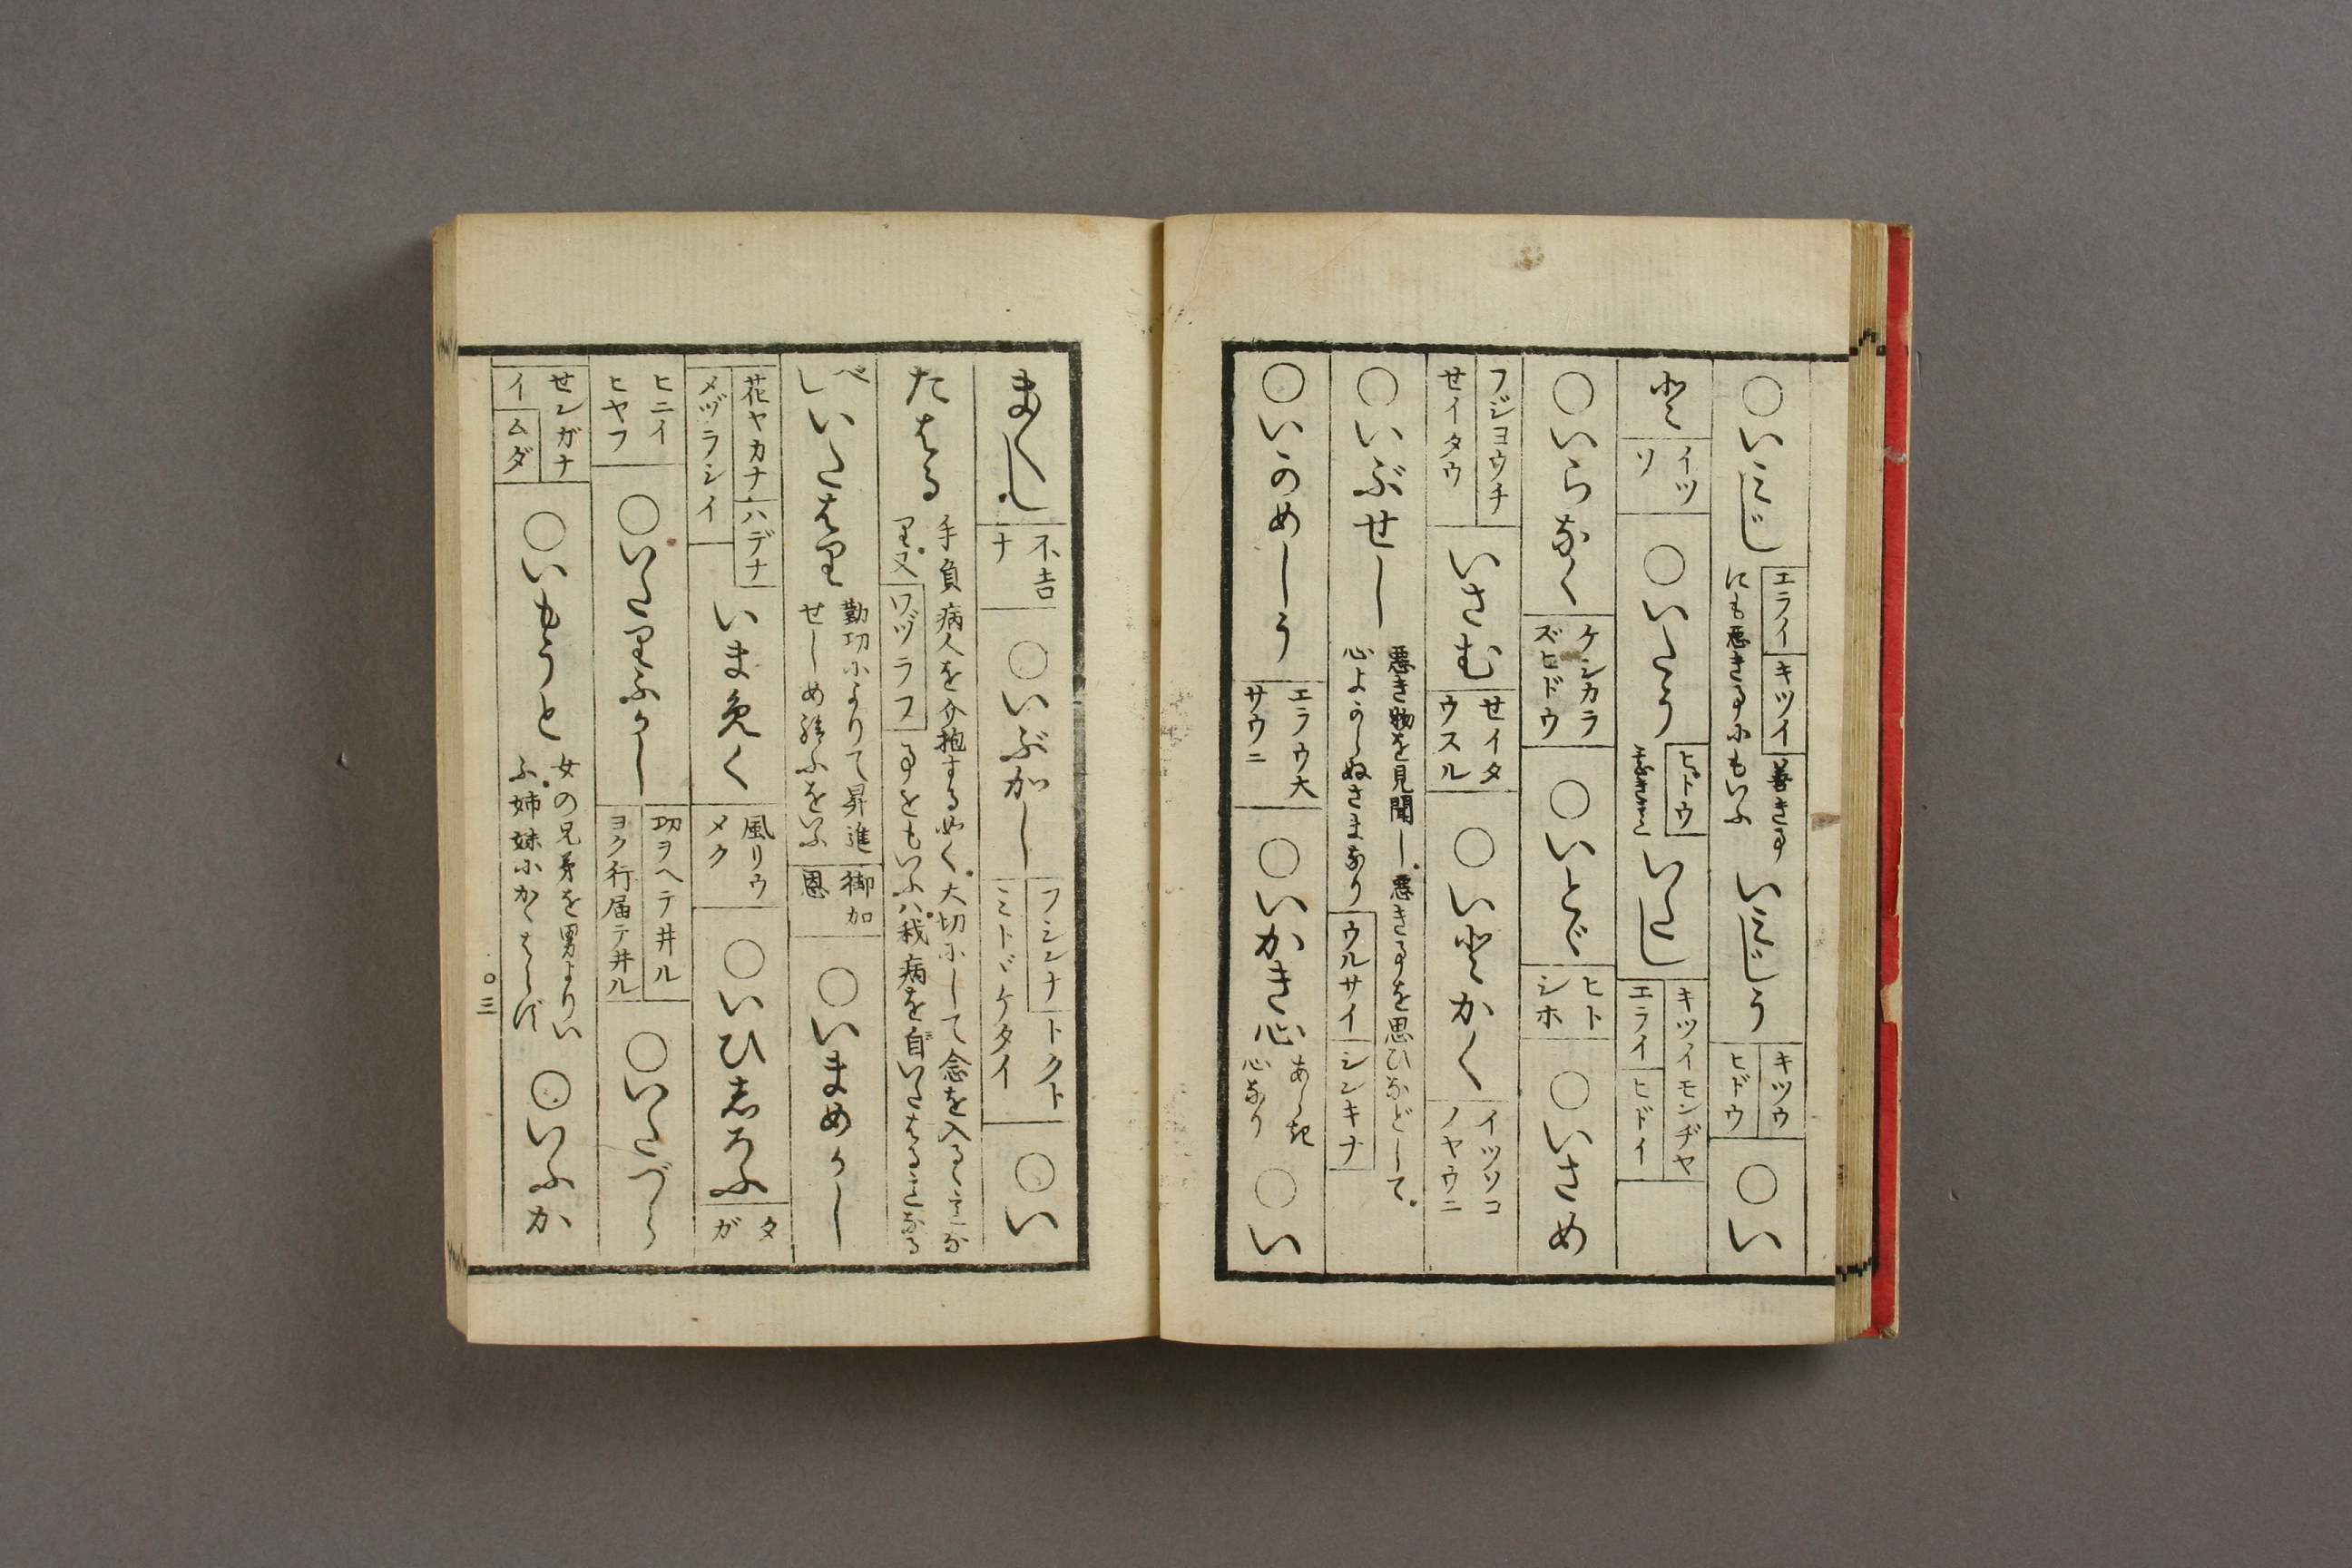 ○いみじ エライ キツイ 善きる にも悪きるにもいふ いみじう キツウ ヒドウ ○い
とゞ イツソ ○いたう ヒドウ いたし キツイモンヂヤ エライ ヒドイ
○いらなく ケシカラズヒドウ ○いとゞ ヒトシホ ○いさめ
フジヨウチ せイタウ いさむ せイタウスル ○いとかく イツソコノヤウニ
○いぶせし 悪き物を見聞し。悪き事を思ひなどして。心よからぬさまなり ウルサイ シンキナ
○いかめしう エラウ大サウニ ○いかき心 あらき心なり ○い
ま〳〵し 不吉ナ ○いぶかし フシンナ トクトミトヾケタイ ○い
たはる 手負病人を介抱する如く。大切にして念を入るゝ ワヅラフ 事をもいふハ我病を自いたはる
べし いたはり 勤功によりて昇進せしめ給ふをいふ 御加恩 ○いまめかし
花ヤカナ ハデナ メヅラシイ いまめく 風リウメク ○いひしろふ タガ
ヒニイヒヤフ ○いたりふかし 功ヲヘテ井ル ヨク行届テ井ル ○いたづら
せンガナイ ムダ ○いもうと 女の兄弟を男よりいふ。姉妹にかゝはらず ○いふか
○三